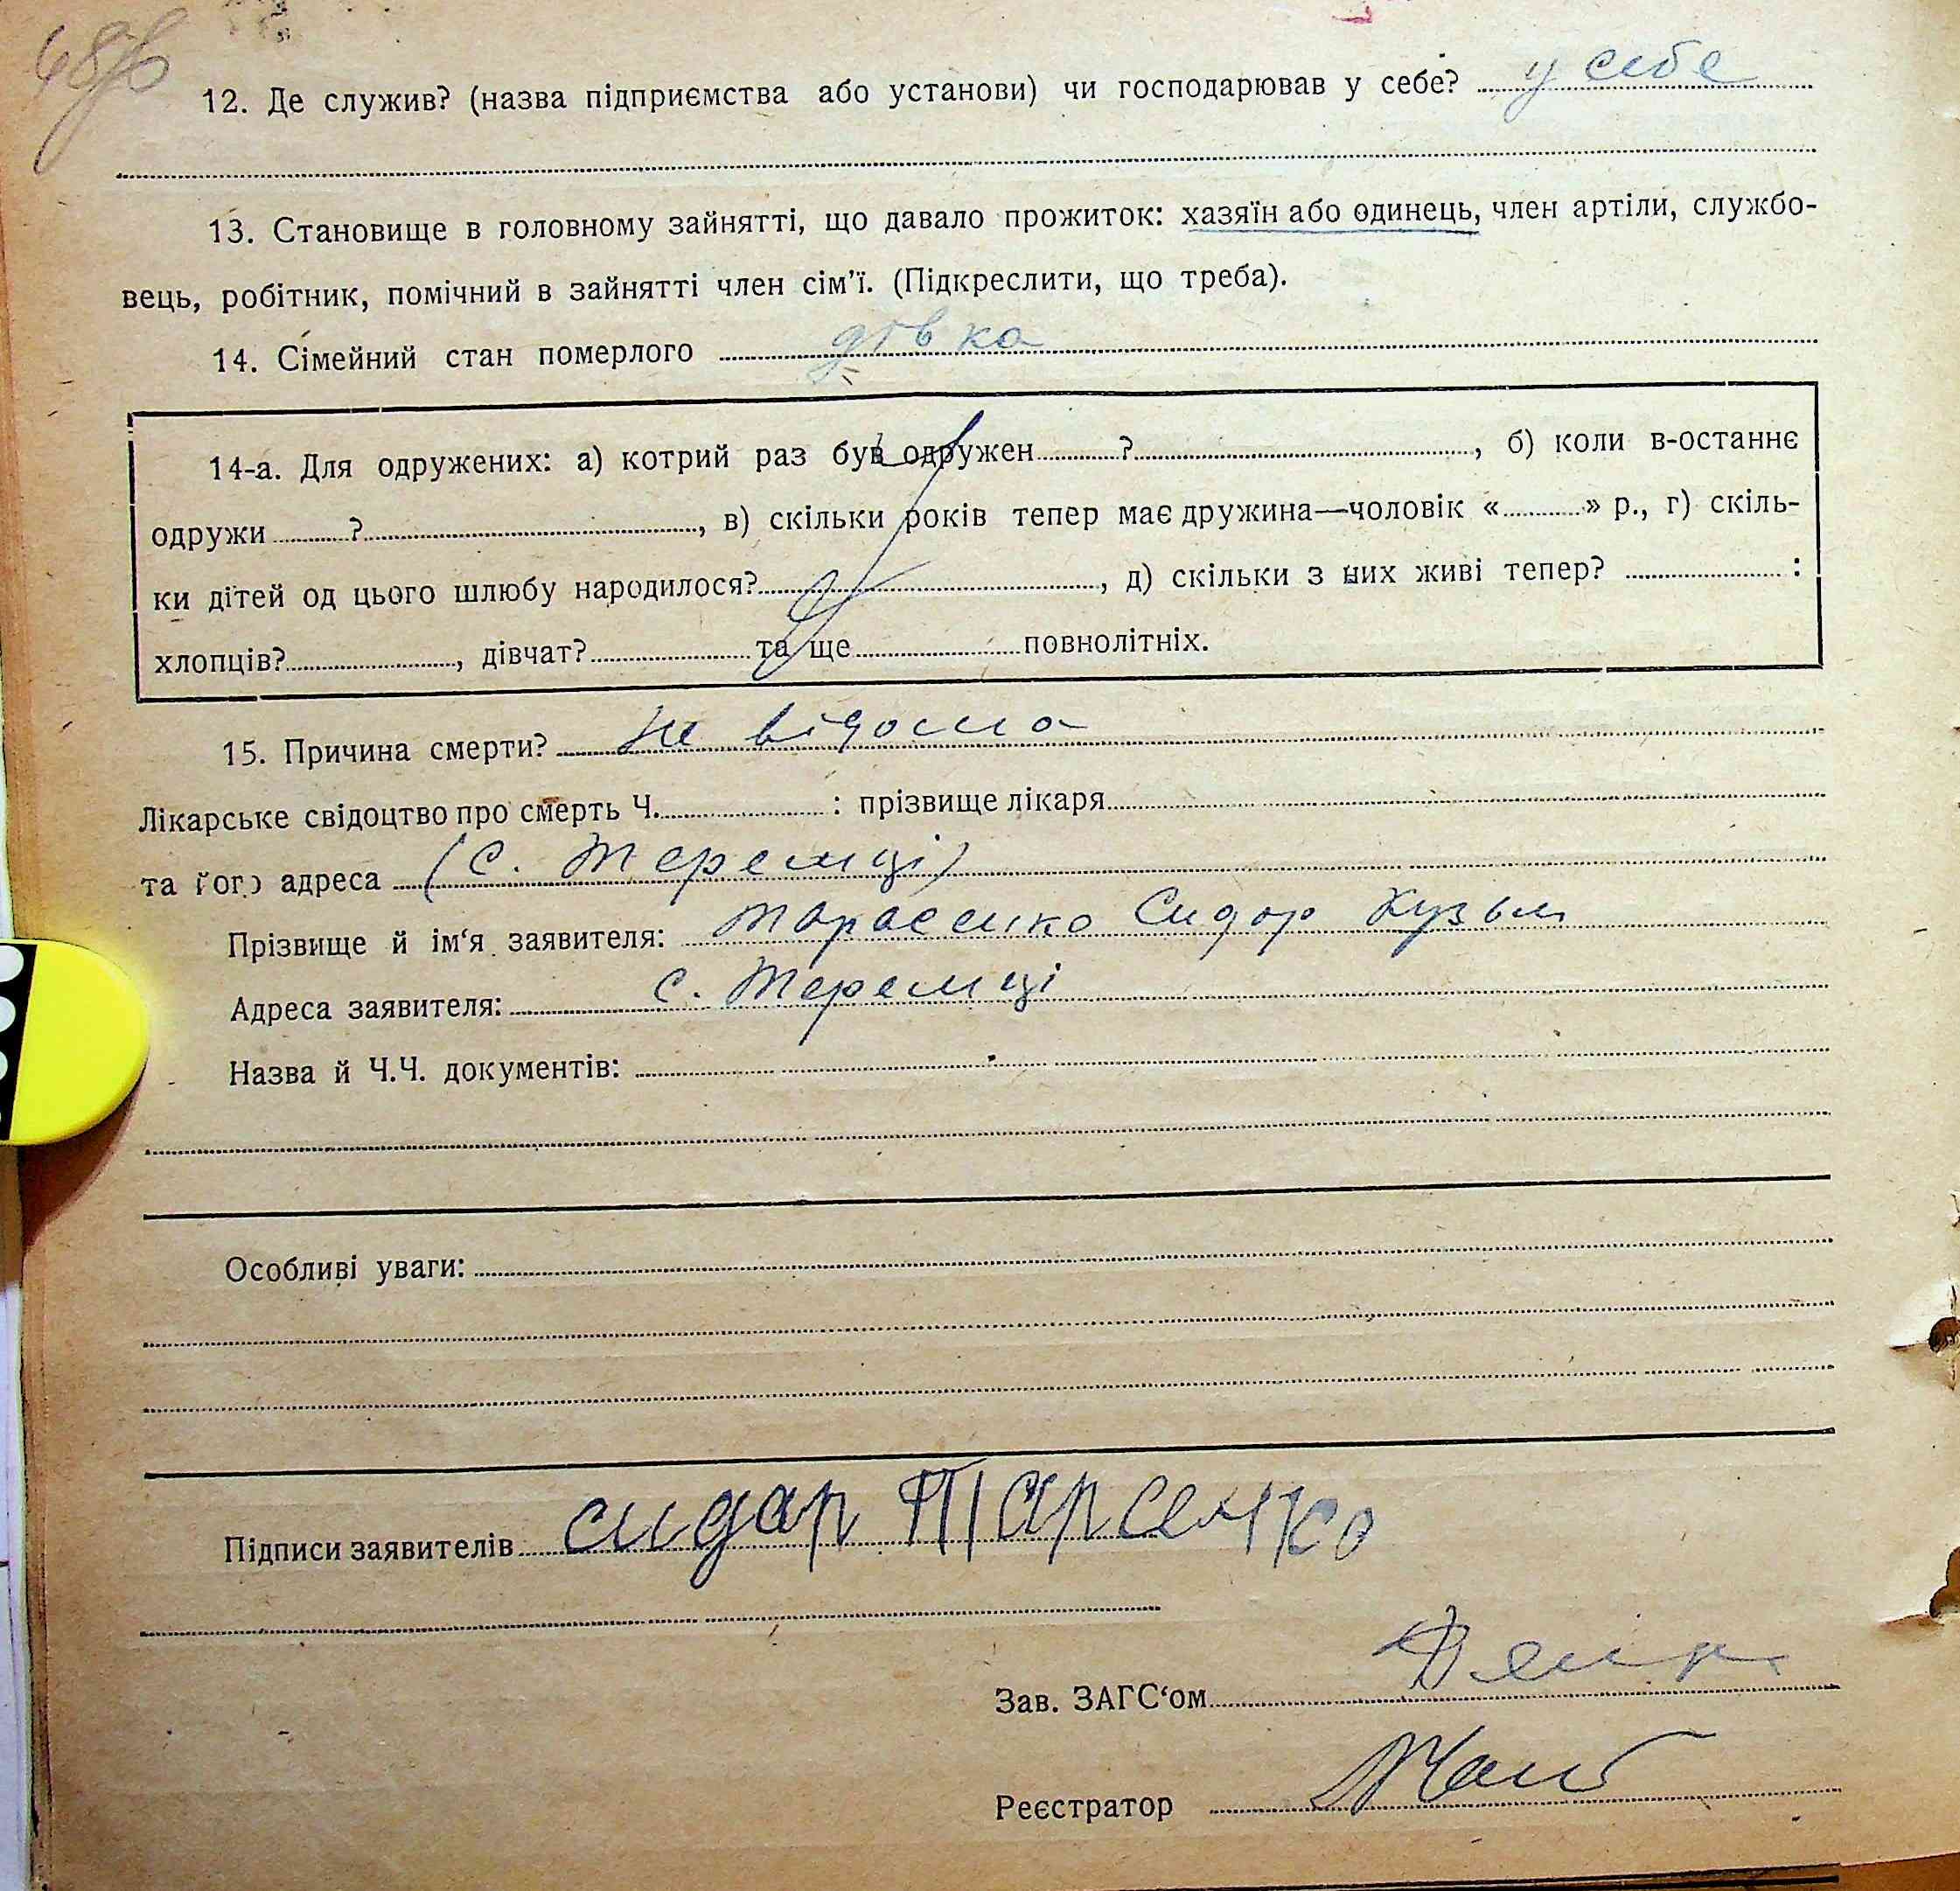 12. Де служив? (назва підприємства або установи) чи господарював у себе? у себе
13. Становище в головному зайнятті, що давало прожиток: хазяїн або одинець, член артіли, службо-
вець, робітник, помічний в зайнятті член сім'ї. (Підкреслити, що треба).
14. Сімейний стан померлого дівка
14-а. Для одружених: а) котрий раз був одружен ?, б) коли в-останнє
одружи ?, в) скільки років тепер має дружина—чоловік « » р., г) скіль-
ки дітей од цього шлюбу народилося?, д) скільки з них живі тепер? :
хлопців?, дівчат? та ще повнолітніх.
15. Причина смерти? Не відома
Лікарське свідоцтво про смерть Ч. : прізвище лікаря
та його адреса (с. Теремці)
Прізвище й ім'я заявителя: Тарасенко Сидор Кузьм
Адреса заявителя: с. Теремці
Назва й Ч.Ч. документів:
Особливі уваги:
Підписи заявителів сидар Тарсенко
Зав. ЗАГС'ом
Реєстратор